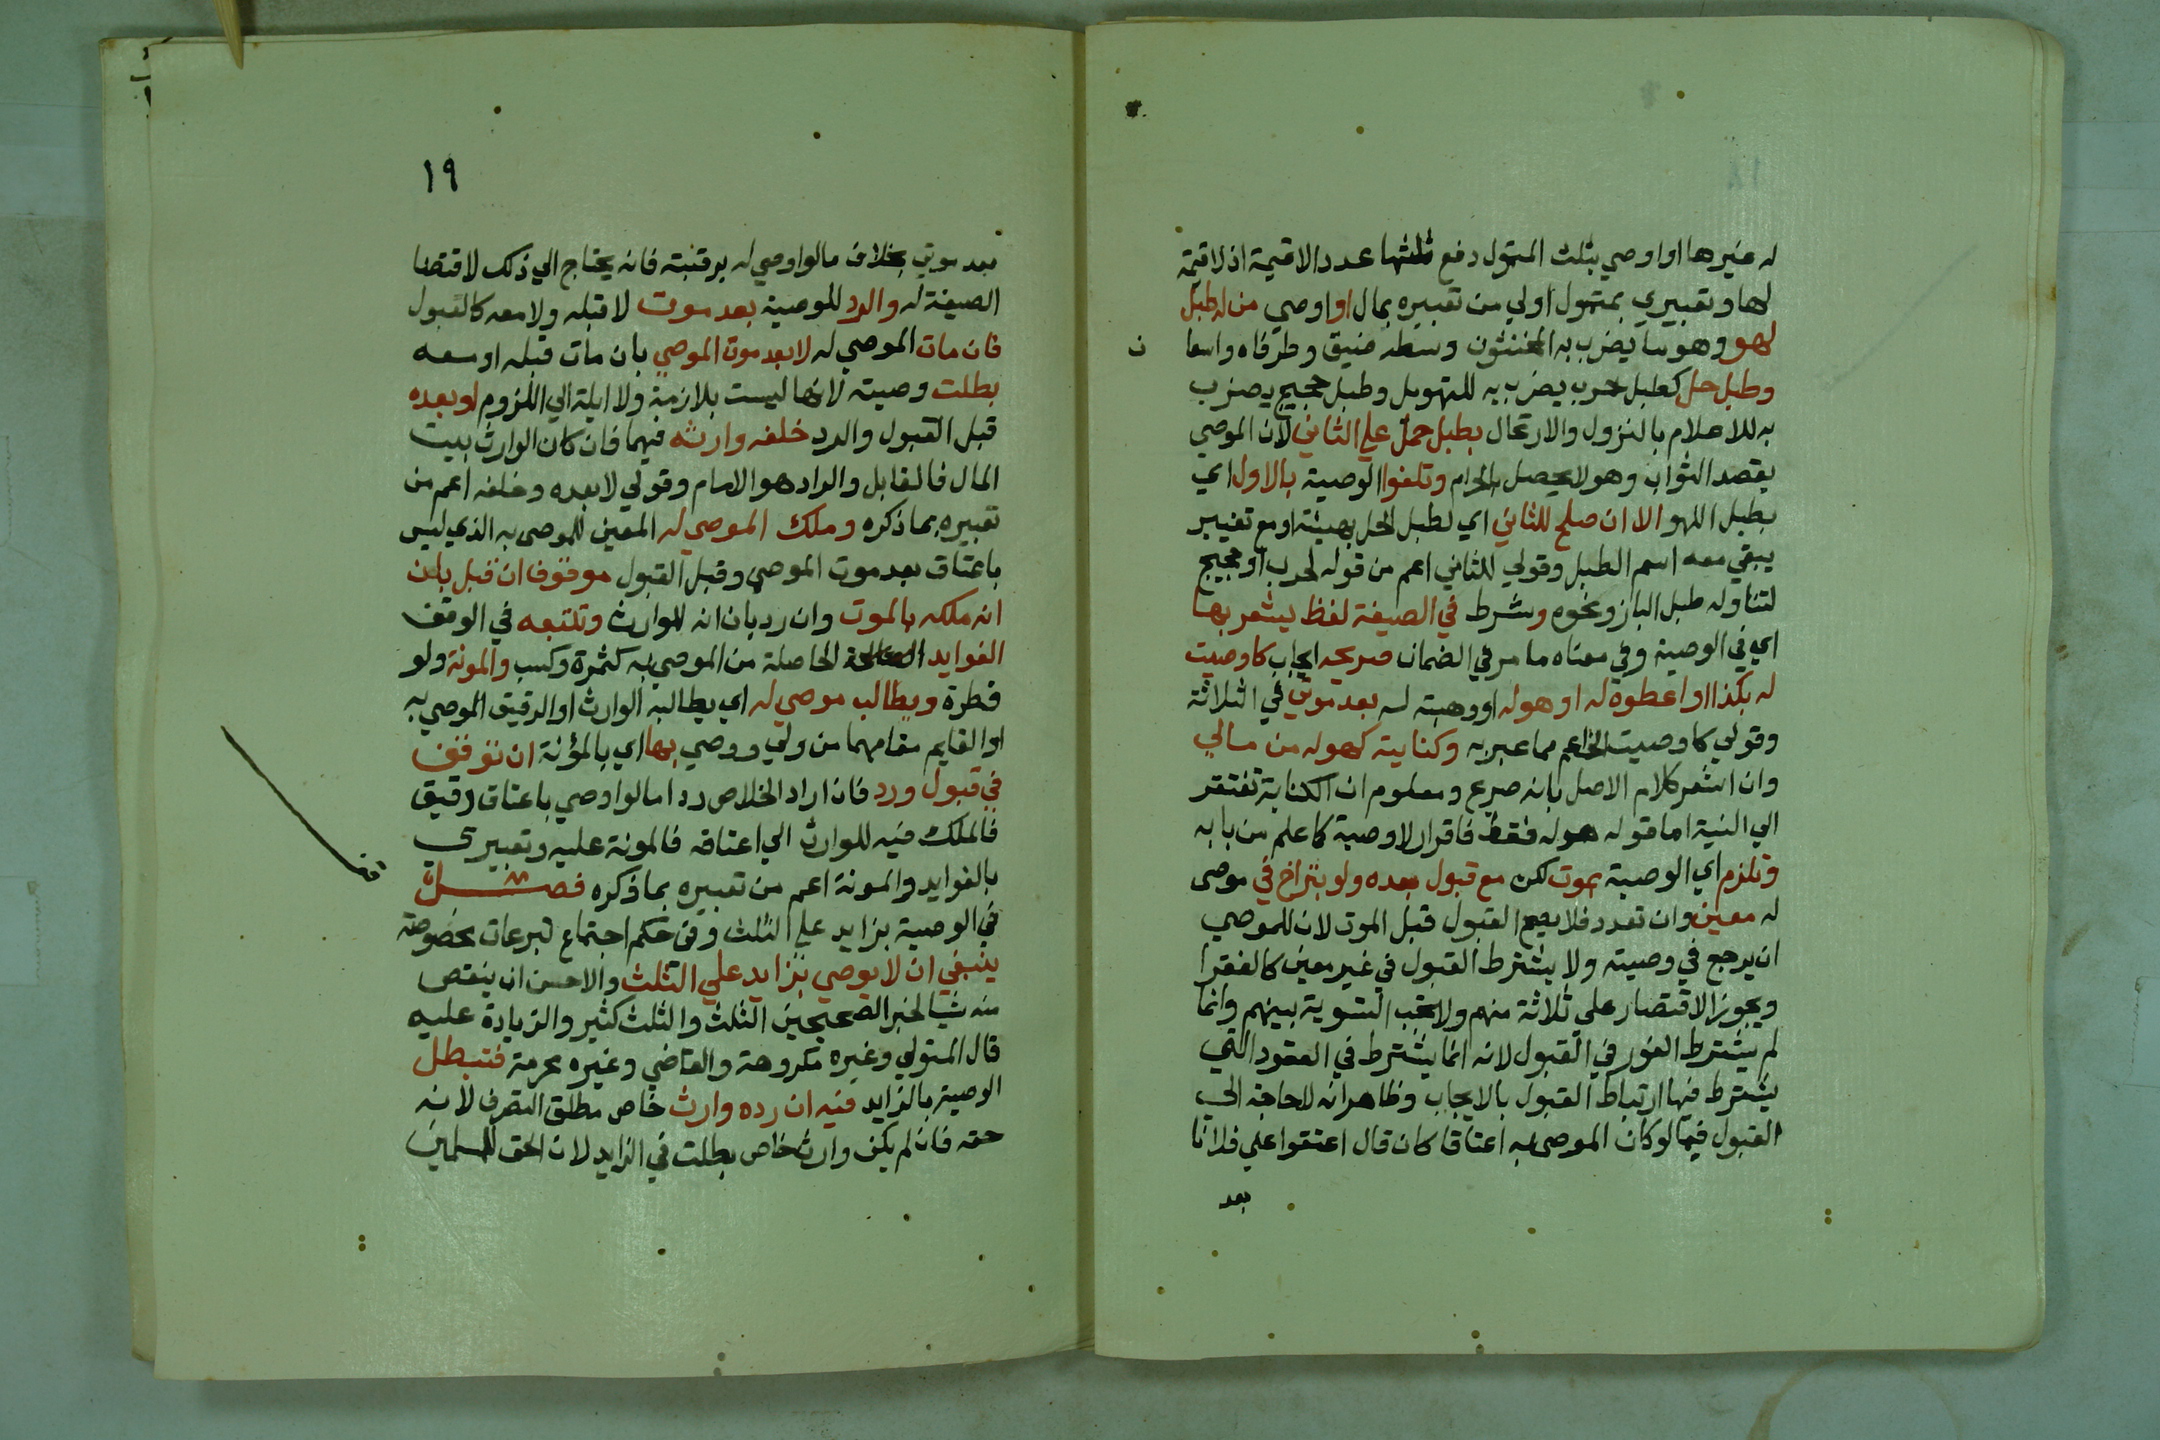 له غيرها او اوصي بثلث المتمول دفع ثلثها عددا لا قيمة اذ لا قيمة
لها وتعبيري بمتمول اولي من تعبيره بمال او اوصي من له طبل
لهو وهو ما يضرب به المخنثون وسطه ضيق وطرفاه واسعا
ن
وطبل حل كطبل حرب يضرب به للتهويل وطبل حجيج يضرب
به للاعلام بالنزول والارتحال بطبل حمل علي الثاني لان الموصي
يقصد الثواب وهو لا يحصل بالحرام وتلغوا الوصية بالاول اي
بطبل اللهو الا ان صلح للثاني اي لطبل الحل بهيئته او مع تغيير
يبقي معه اسم الطبل وقولي للثاني اعم من قوله لحرب او حجيج
لتناوله طبل الباز ونحوه وشرط في الصيغة لفظ يشعر بها
اي في الوصية وفي معناه ما مر في الضمان صريحه ايجاب كاوصيت
له بكذا او اعطوه له او هو له او وهبته له بعد موتي في الثلاثة
وقولي كاوصيت الخ اعم مما عبر به وكناية كهو له من مالي
وان اشعر كلام الاصل بانه صريح ومعلوم ان الكناية تفتقر
الي النية اما قوله هو له فقط فاقرار لا وصية كما علم من بابه
وتلزم اي الوصية بموت لكن مع قبول بعده ولو بتراخ في موصى
له معين وان تعدد فلا يصح القبول قبل الموت لان للموصي
ان يرجع في وصيته ولا يشترط القبول في غير معين كالفقرا
ويجوز الاقتصار على ثلاثة منهم ولا تجب التسوية بينهم وانما
لم يشترط الفور في القبول لانه انما يشترط في العقود التي
يشترط فيها ارتباط القبول بالايجاب وظاهر انه لا حاجة الي
القبول فيما لو كان الموصى به اعتاقا كان قال اعتقوا عني فلانا
بعد
١٩
بعد موتي بخلاف ما لو اوصي له برقبته فانه يحتاج الي ذلك لاقتضا
الصيغة له والرد للوصية بعد موت لا قبله ولا معه كالقبول
فان مات الموصي له لا بعد موت الموصي بان مات قبله او معه
بطلت وصيته لانها ليست بلازمة ولا ايلة الي اللزوم او بعده
قبل القبول والرد خلفه وارثه فيهما فان كان الوارث بيت
المال فالقابل والراد هو الامام وقولي لا بعده وخلفه اعم من
تعبيره بما ذكره وملك الموصي له المعين للموصى به الذي ليس
باعتاق بعد موت الموصي وقبل القبول موقوف ان قبل بان
انه ملكه بالموت وان رد بان انه للوارث وتتبعه في الوقف
الفوايد الحاصلة من الموصي به كثمرة وكسب والمونة ولو
فطرة ويطالب موصي له اي يطالبه الوارث او الرقيق الموصي به
او القايم مقامهما من ولي ووصي بها اي بالمؤنة ان توقف
في قبول ورد فان اراد الخلاص رد اما لو اوصي باعتاق رقيق
فالملك فيه للوارث الي اعتاقه فالمونة عليه وتعبيري
بالفوايد والمونة اعم من تعبيره بما ذكره فصل
في الوصية بزايد علي الثلث وفي حكم اجتماع تبرعات مخصوصة
ينبغي ان لا يوصي بزايد علي الثلث والاحسن ان ينقص
منه شيا لخبر الصحيحين الثلث والثلث كثير والزيادة عليه
قال المتولي وغيره مكروهة والقاضي وغيره محرمة فتبطل
الوصية بالزايد فيه ان رده وارث خاص مطلق التصرف لانه
حقه فان لم يكن وارث خاص بطلت في الزايد لان الحق للمسلمين